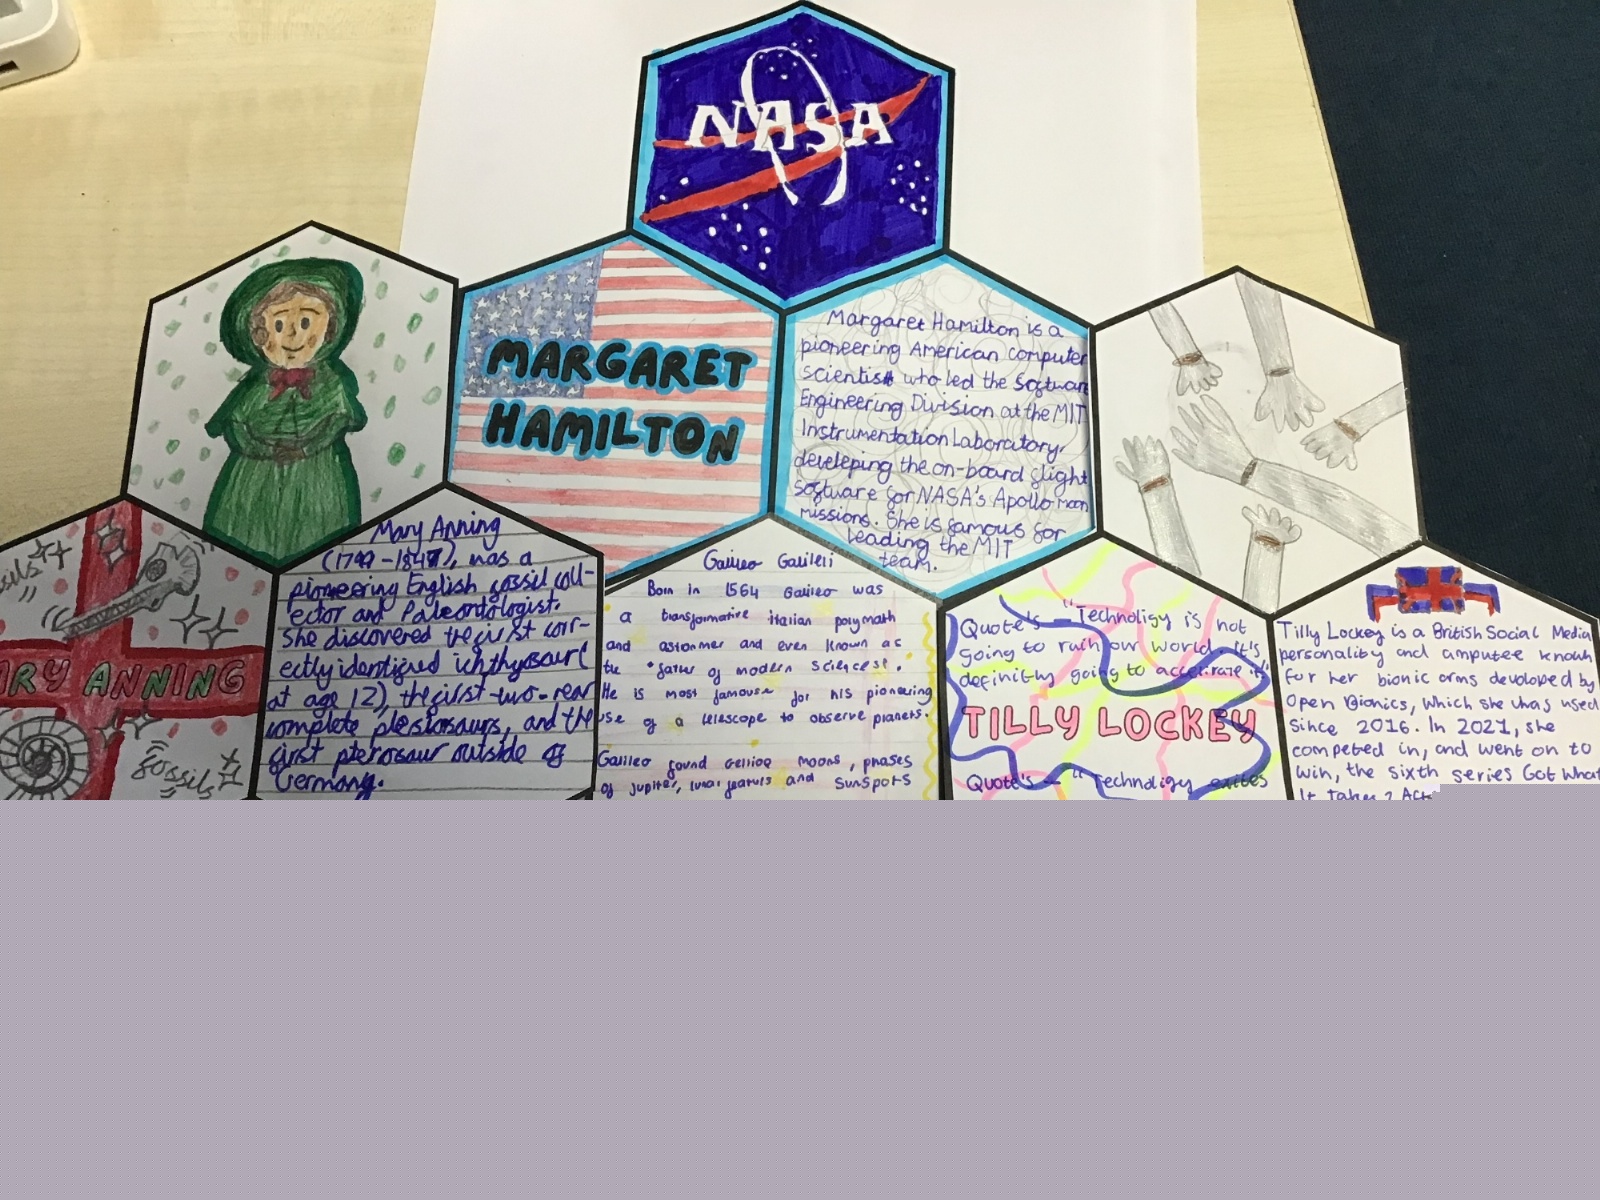 NASA
MARGARET
HAMILTON
Margaret Hamilton is a
pioneering American computer
scientist who led the Software
Engineering Division at the MIT
Instrumentation Laboratory.
developing the on-board flight
software for NASA's Apollo
missions. She is famous for
leading the MIT
team.
fossils
RY ANNING
fossils
Mary Anning
was a
pioneering English fossil coll-
ector and Paleontologist.
She discovered the first corr-
ectly identified ichthyosaur (
at age 12), the first two-near
complete plesiosaurs, and the
first pterosaur outside of
Germany.
Galileo Galileii
Born in 1564 Galileo was
a transformative italian polymath
and astonmer and even known as
the "father of modern sciences".
He is most famous for his pioneering
use of a telescope to observe planets.
Galileo found moons, phases
of jupiter, lunar and sunspots
Quote's — "Technoligy is not
going to ruin our world. It's
definitly going to accelrate it"
TILLY LOCKEY
Quote's — "Technoligy exites
Tilly Lockey is a British Social Media
personality and amputee known
for her bionic arms devoloped by
Open Bionics, which she has used
since 2016. In 2021, she
competed in, and went on to
win, the sixth series Got What
It Takes?